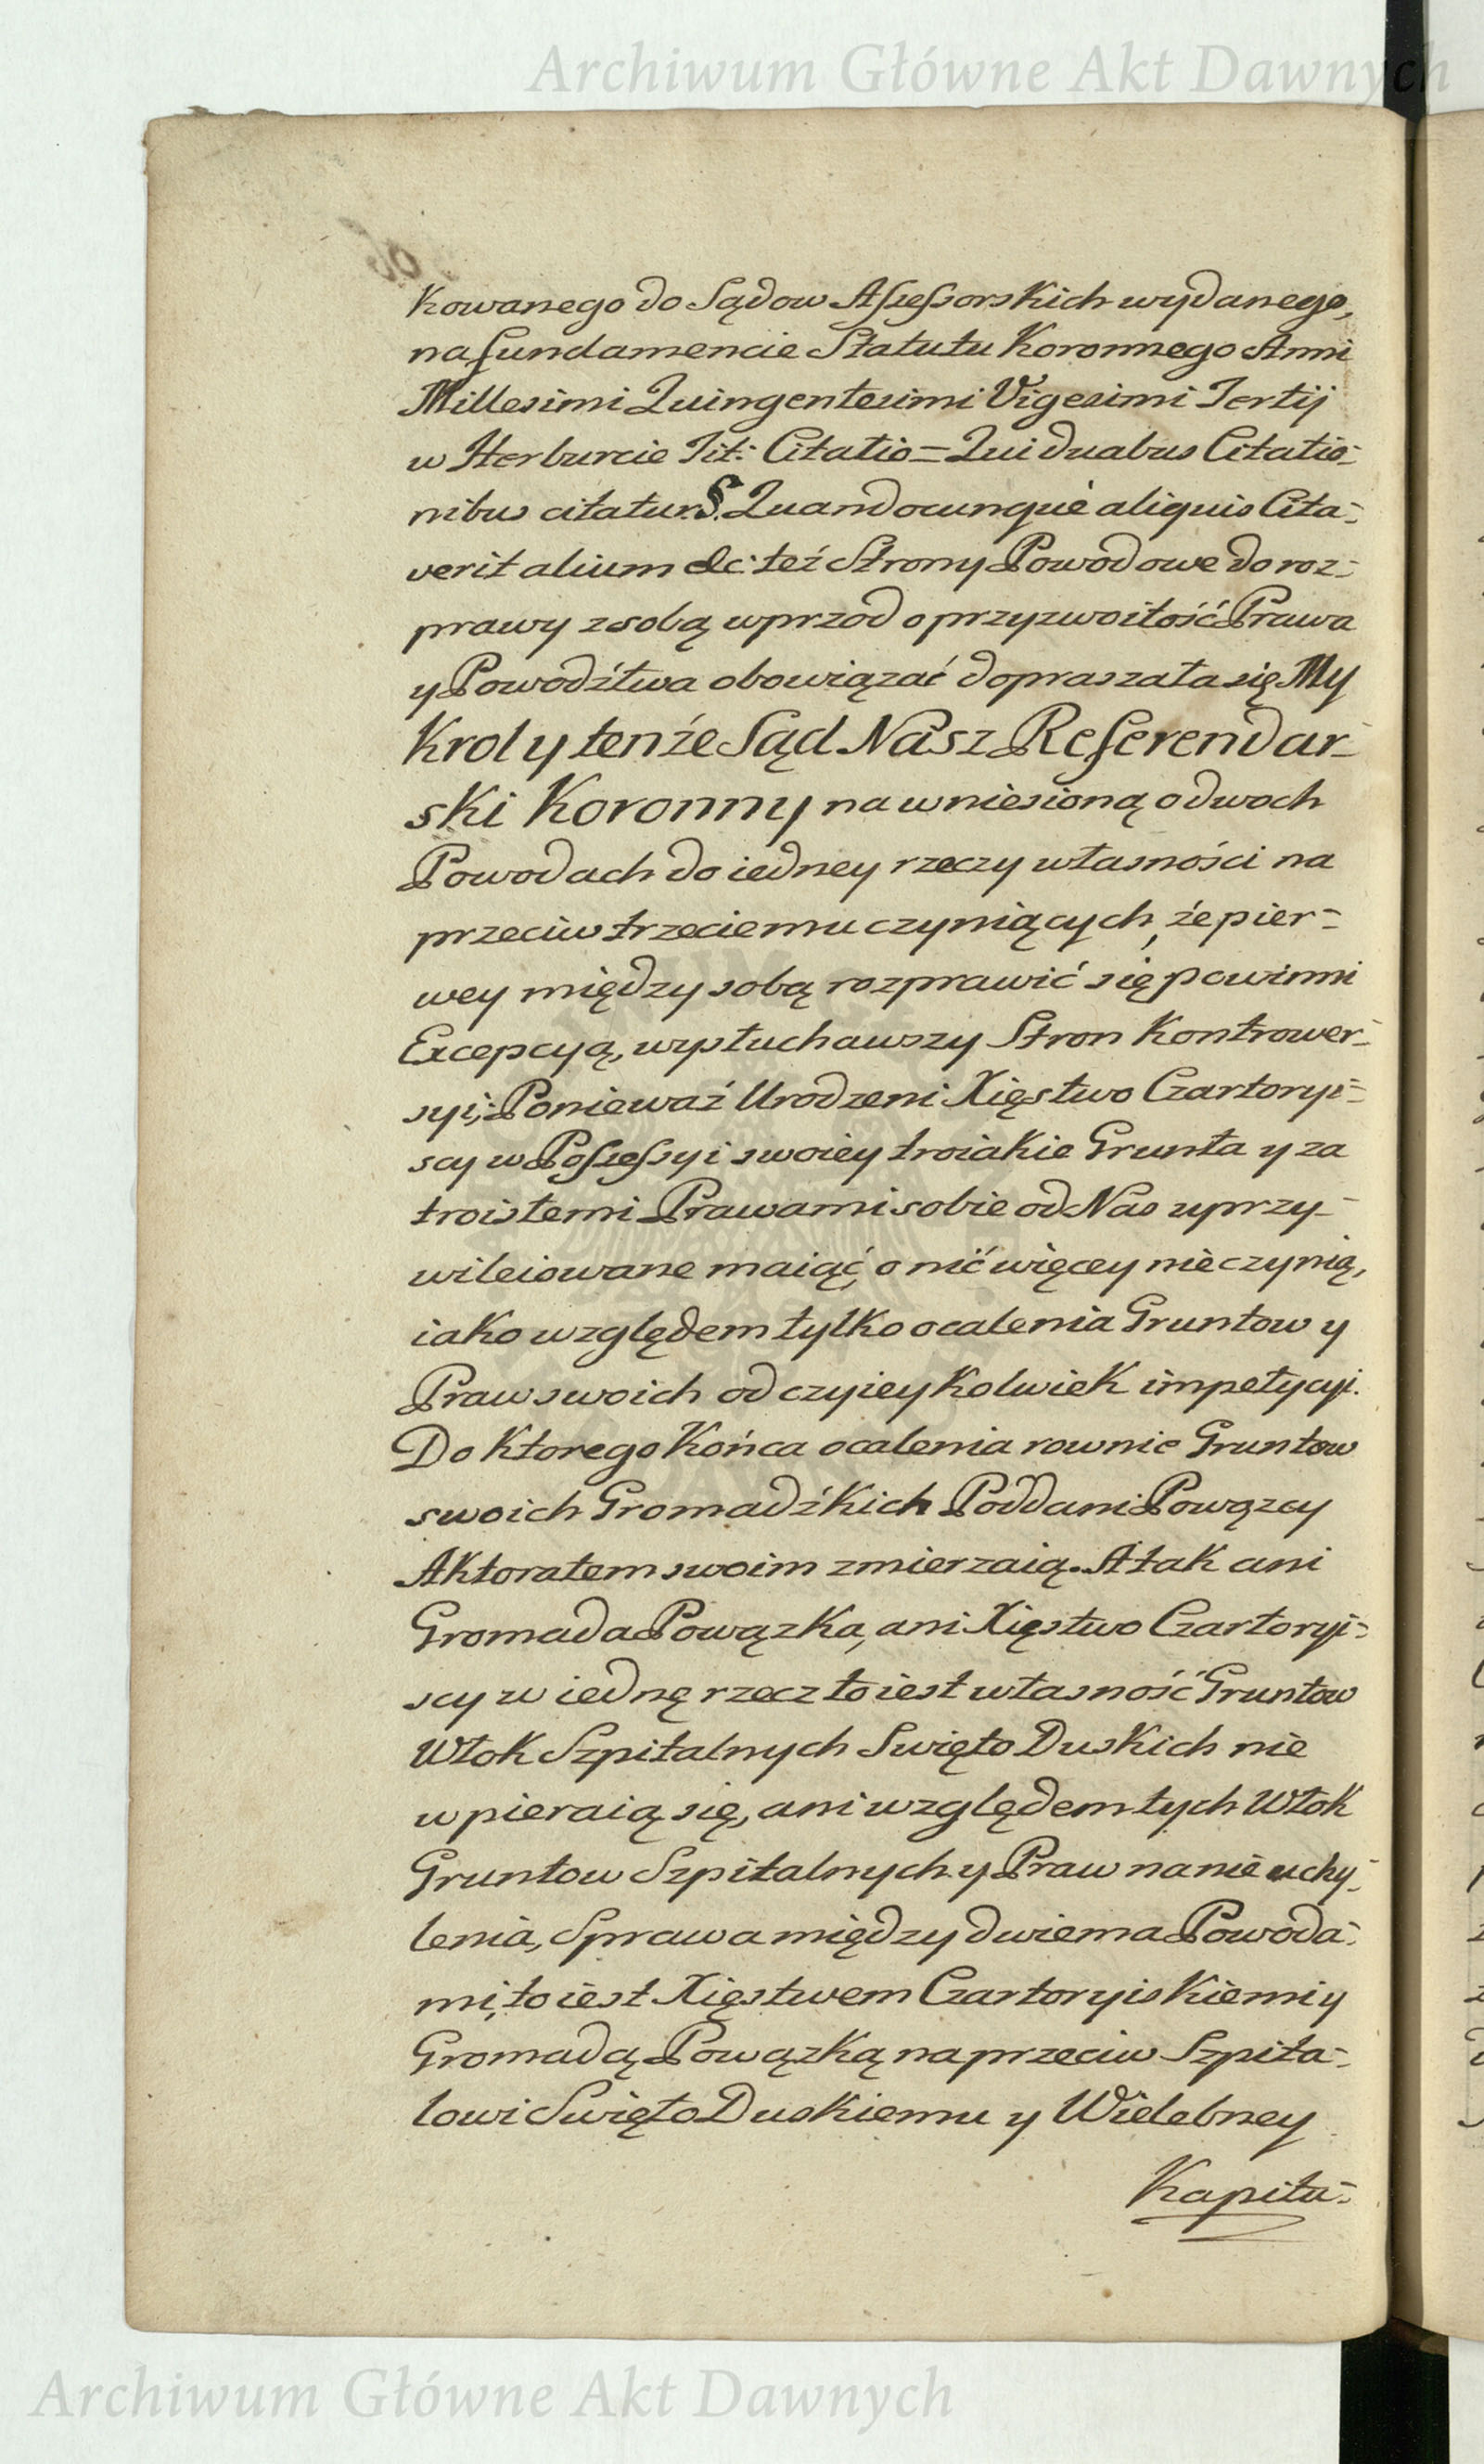 Archiwum Główne Akt Dawnych
kowanego do Sądow Assessorskich wydanego,
na fundamencie Statutu Koronnego Anni
Millesimi Quingentesimi Vigesimi Tertij
w Herburcie Tit: Citatio = Qui duabus Citatio=
nibus citatur §. Quandocunque aliquis Cita=
verit alium &c: też Strony Powodowe do roz=
prawy z sobą wprzod o przyzwoitość Prawa
y Powodźtwa obowiązać dopraszała się My
Krol y tenże Sąd Nasz Referendar=
ski Koronny na wniesioną o dwoch
Powodach do iedney rzeczy własności na
przeciw trzeciemu czyniących, że pier=
wey między sobą rozprawić się powinni
Excepcyą, wysłuchawszy Stron Kontrower=
syi; Ponieważ Urodzeni Xięstwo Czartoryi=
scy w Possessyi swoiey troiakie Grunta y za
troistemi Prawami sobie od Nas uprzy=
wileiowane maiąć, o nić więcey nie czynią,
iako względem tylko ocalenia Gruntow y
Praw swoich od czyiey kolwiek impetycyi.
Do ktorego Końca ocalenia rownie Gruntow
swoich Gromadźkich Poddani Powązcy
Aktoratem swoim zmierzaią. A tak ani
Gromada Powązka, ani Xięstwo Czartoryi=
scy w iednę rzecz to iest własność Gruntow
Włok Szpitalnych Swięto Duskich nie
wpieraią się, ani względem tych Włok
Gruntow Szpitalnych y Praw na nie uchy=
lenia, Sprawa między dwiema Powoda=
mi, to iest Xięstwem Czartoryiskiemi y
Gromadą Powązką naprzeciw Szpita=
lowi Swięto Duskiemu y Wielebney
Kapitu=
Archiwum Główne Akt Dawnych